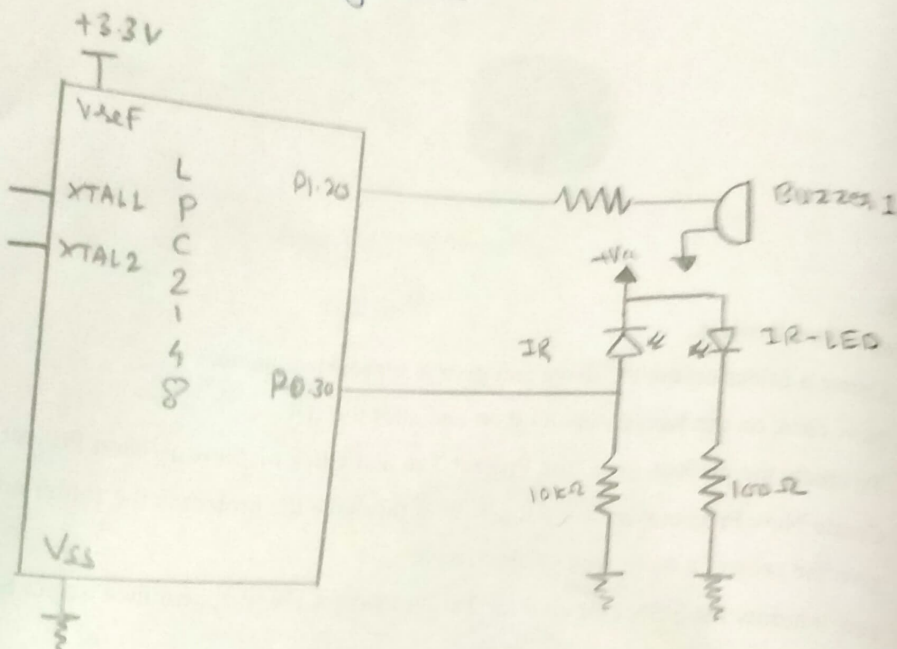 +3.3V
Vref
XTAL1
XTAL2
L
P
C
2
1
4
8
P1.20
P0.30
Vss
Buzzer 1
+Vcc
IR
IR-LED
10kΩ
100Ω